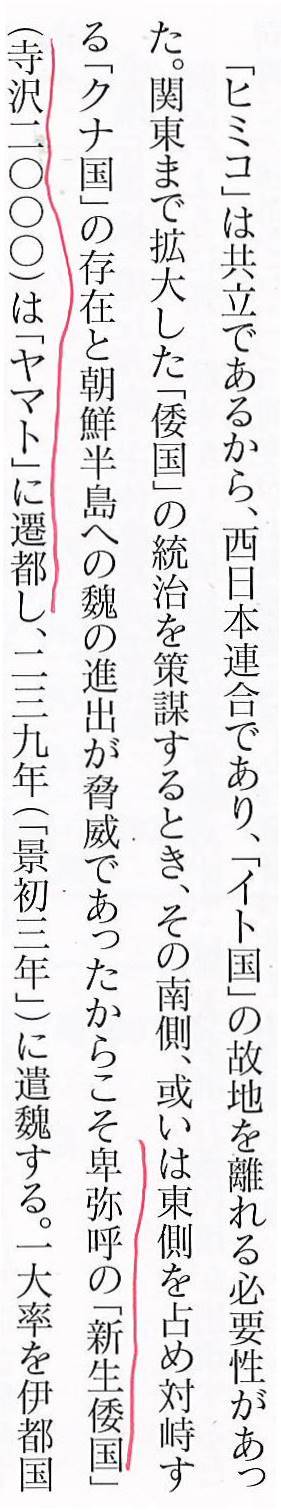 「ヒミコ」は共立であるから、西日本連合であり、「イト国」の故地を離れる必要性があっ
た。関東まで拡大した「倭国」の統治を策謀するとき、その南側、或いは東側を占め対峙す
る「クナ国」の存在と朝鮮半島への魏の進出が脅威であったからこそ卑弥呼の「新生倭国」
（寺沢二〇〇〇）は「ヤマト」に遷都し、二三九年（「景初三年」）に遣魏する。一大率を伊都国